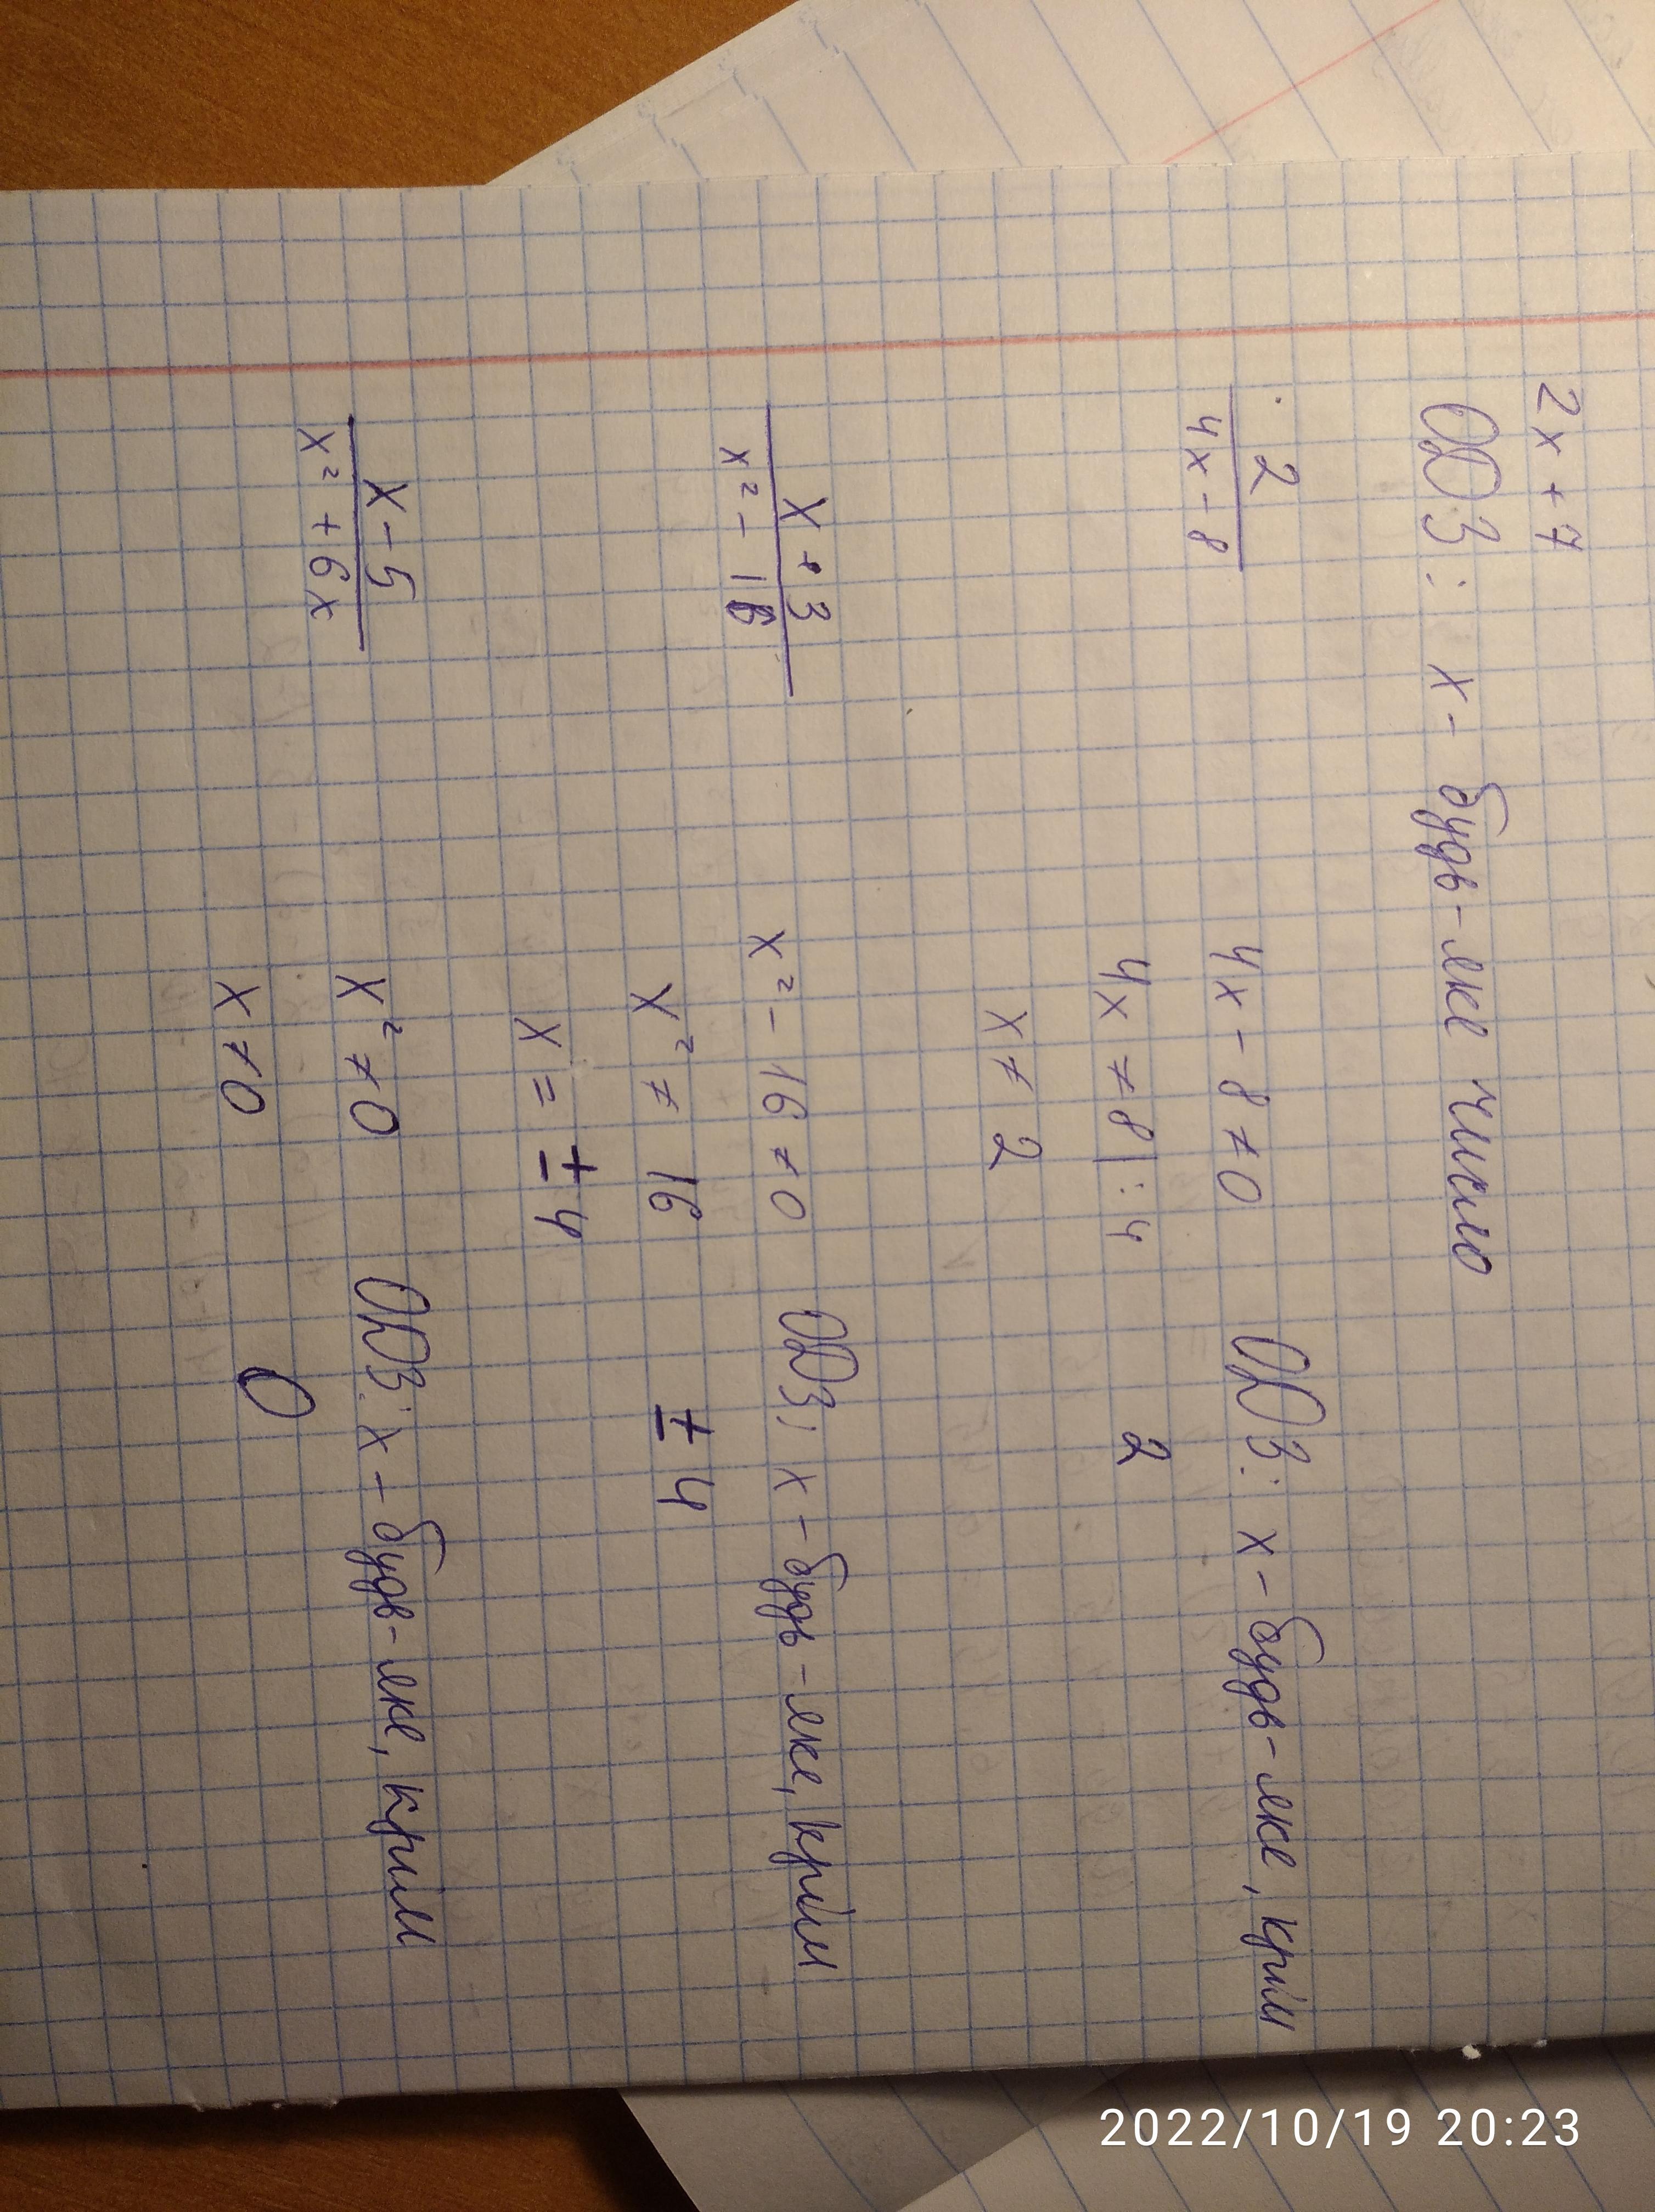 2x + 7
ОДЗ: x - будь-яке число
2 / 4x - 8    4x - 8 ≠ 0    ОДЗ: x - будь-яке, крім
4x ≠ 8 | : 4    2
x ≠ 2
x + 3 / x² - 16    x² - 16 ≠ 0    ОДЗ: x - будь-яке, крім
x² ≠ 16    ± 4
x = ± 4
x - 5 / x² + 6x    x² ≠ 0    ОДЗ: x - будь-яке, крім
x ≠ 0    0
2022/10/19 20:23